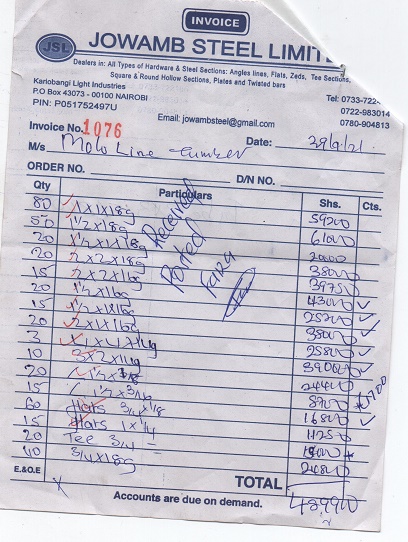 INVOICE
JSL JOWAMB STEEL LIMITE
Dealers in: All Types of Hardware & Steel Sections: Angles lines, Flats, Zeds, Tee Sections,
Square & Round Hollow Sections, Plates and Twisted bars
Kariobangi Light Industries
P.O Box 43073 - 00100 NAIROBI
PIN: P051752497U
Tel: 0733-7224
0722-983014
0780-904813
Email: jowambsteel@gmail.com
Invoice No. 1076
Date: 28/9/21
M/s Molo Line
ORDER NO. D/N NO.
Qty Particulars Shs. Cts.
80 1x1x18g 59200
50 1½x1x18g 61000
20 1½x1½x18g
20 2x2x18g 38000
15 2x2x16g 39750
20 43000
15 1½x1½x16g 25200
20 2x1x16g 38000
3 25800
10 3x2x16g 39000
20 1½x 24400
15 1½x3/16 8700
60 Flats 3/4x1/8 16800
15 Flats 1x1/4 11250
20 Tee 3/4
40 3/4x18g 20800
Received
Posted
Faiza
E.&O.E TOTAL 489900
Accounts are due on demand.